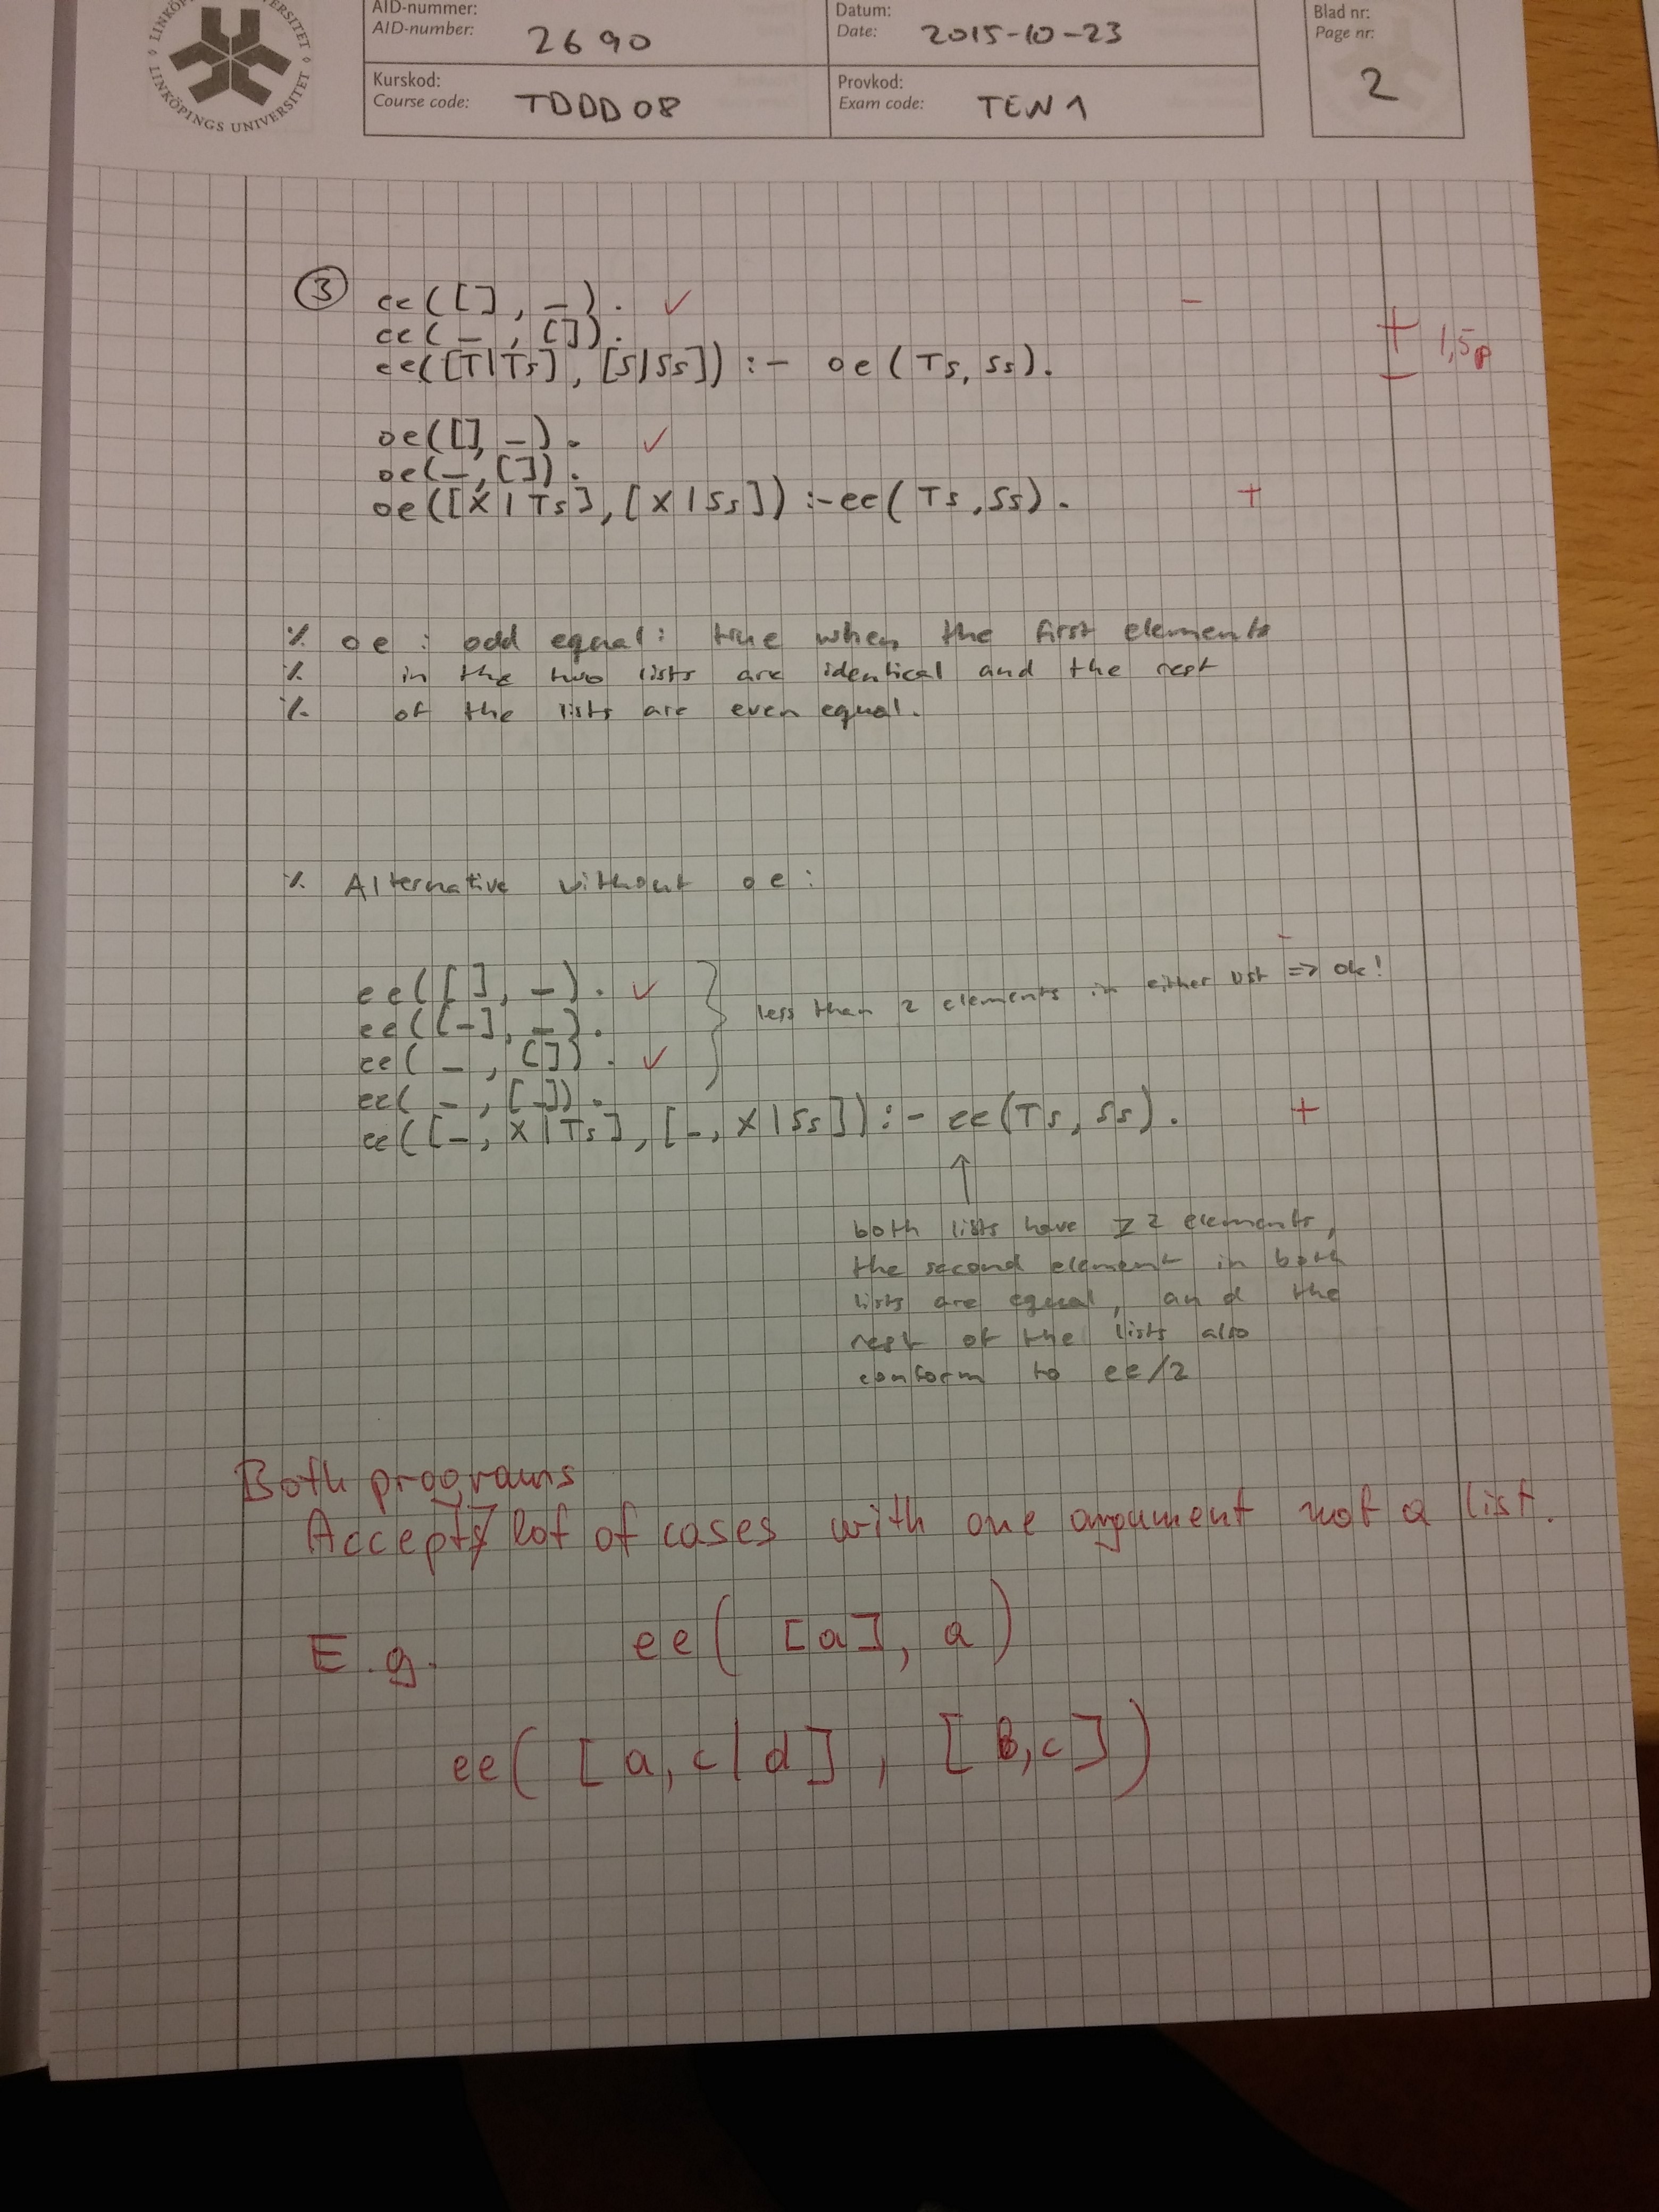 LINKÖPINGS UNIVERSITET
AID-nummer:
AID-number: 2690
Datum:
Date: 2015-10-23
Blad nr:
Page nr:
2
Kurskod:
Course code: TDDD08
Provkod:
Exam code: TEN1
③ ee([], _). ✓ -
ee(_, []).
ee([T|Ts], [S|Ss]) :- oe(Ts, Ss).
+ 1,5p
-
oe([], _). ✓
oe(_, []).
oe([X|Ts], [X|Ss]) :- ee(Ts, Ss). +
% oe : odd equal: true when the first elements
% in the two lists are identical and the rest
% of the lists are even equal.
% Alternative without oe:
ee([], _). ✓
ee([_], _).
ee(_, []). ✓
ee(_, [_]).
} less than 2 elements in either list => ok! -
ee([_, X|Ts], [_, X|Ss]) :- ee(Ts, Ss). +
↑
both lists have ≥ 2 elements,
the second element in both
lists are equal, and the
rest of the lists also
conform to ee/2
Both programs
Accept lot of cases with one argument not a list.
E.g. ee( [a], a)
ee( [a, c|d], [B, c])